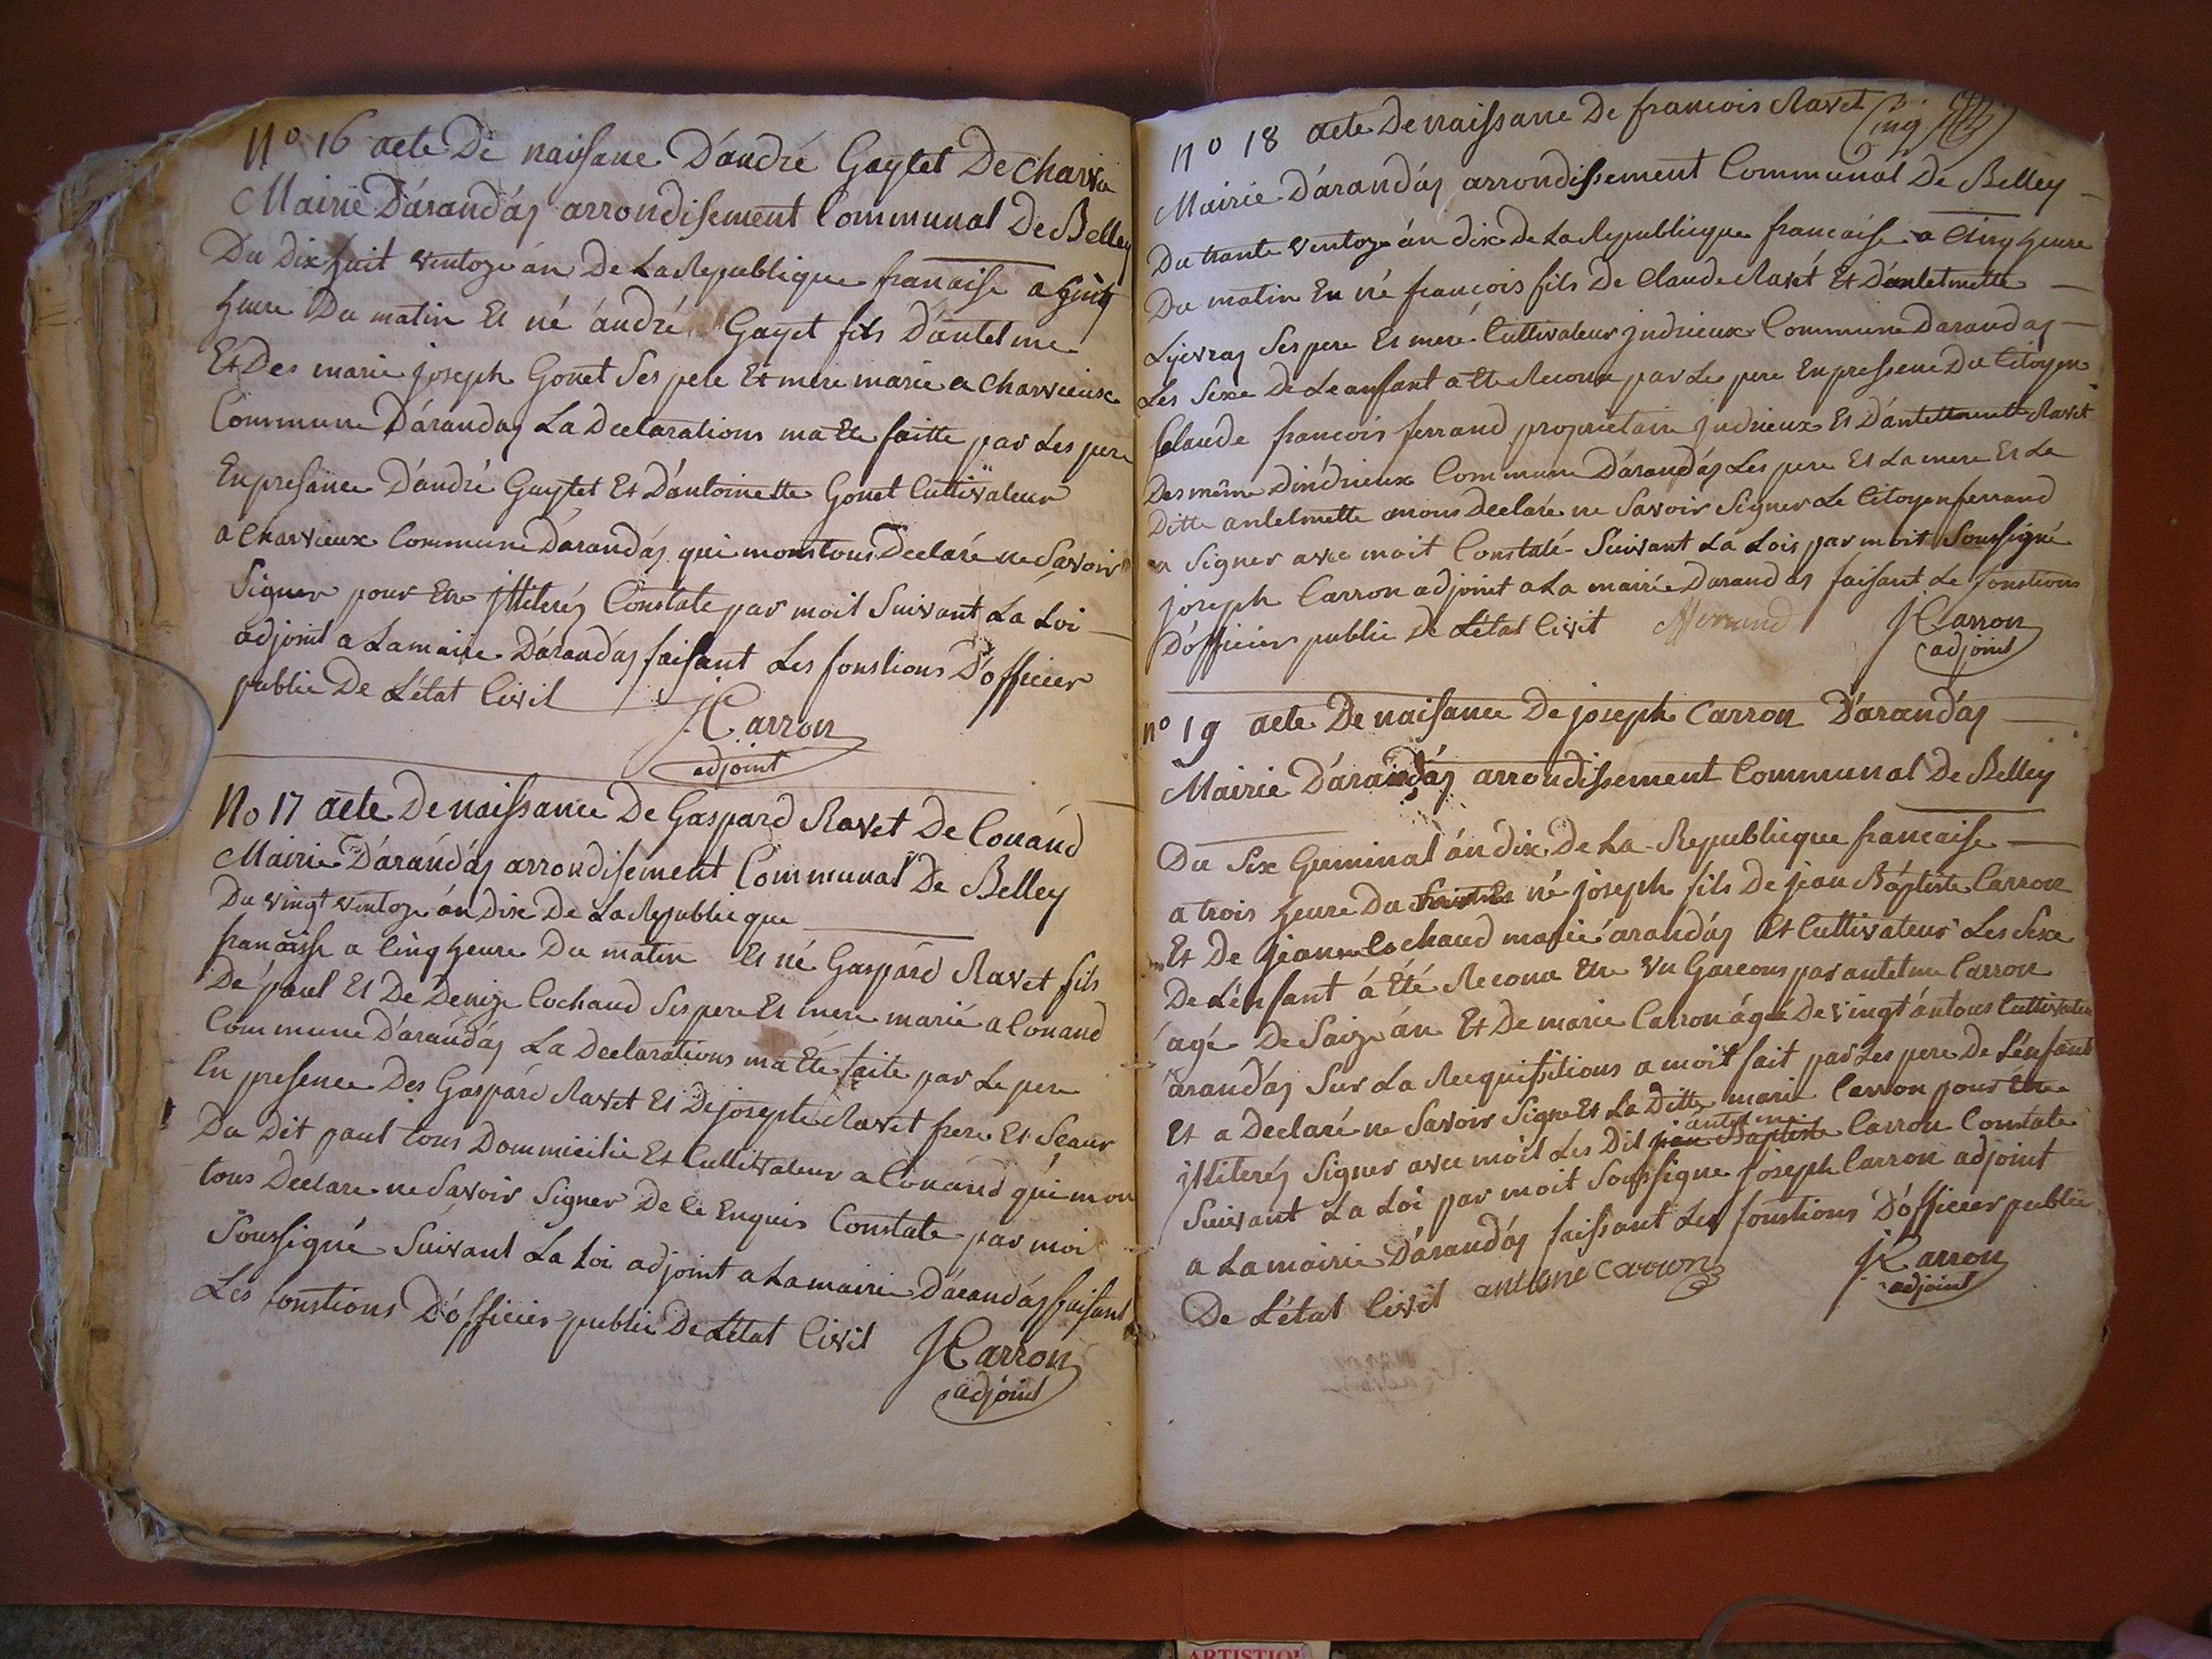 No 16 acte De naisance D'andré Gaytet De charvie
Mairie D'arandas arrondisement Communal De Belley
Du Dix huit ventoze án De La Republique francaise a huit
heure Du matin Et né ándré Gayet fils D'antelme
Et Des marie joseph Gonet Ses pere Et mere marie a Charvieux
Commune D'árandas La Declarations ma Ete faitte par Les pere
En presance D'andré Gaytet Et D'antoinette Gonet Cultivateur
a Charvieux Commune Dárandás qui mons tous Declaré ne Savoir
Signer pour Etre jlliterés Constate par moit Suivant La Loi
adjoint a La mairie Dárandás faisant Les fonstions D'officier
public De L'état Civil
JCarron
adjoint
No 17 acte De naissance De Gaspard Ravet De Conánd
Mairie D'arándás arrondisement Communal De Belley
Du vingt ventoze án Dix De La Republicque
francaisse a Cinq heure Du matin Et né Gaspárd Ravet fils
De paul Et De Denize Cochaud Ses pere Et mere marié a Conand
Commune D'arándás La Declarations ma Eté faite par Le pere
En presence Des Gaspárd Ravet Et De joseph Ravet frere Et Seaur
Du Dit paul tous Dommicilié Et Cultivateur a Conánd qúi mon
tous Déclare ne Savoir Signer De Ce Enquis Constate par moi
Soussigné Suivant La Loi adjoint a La mairie D'árandás faisant
Les fonstions D'officier public De L'état Civil JCarron
adjoint
no 18 acte De naissance De francois Ravet Cinq
Mairie D'árandás arrondissement Communál De Belley
Du trante ventoze án dix De La Republicque francaise a Cinq heure
Du matin En né francois fils De Claude Ravet Et D'antelmette
Ses pere Et meré Cultivateur jndrieux Commune Darandas
Les Sexe De Leanfant a Ete Reconu par Les pere En pressence Du Citoyen
Claude francois ferrand proprietaire jndrieux Et D'antelmette Ravet
Des même D'indrieux Commune D'árandás Les pere Et La mere Et La
Ditte antelmette mons Declaré ne Savoir Signer Le Citoyen ferrand
a Signer avec moit Constaté Suivant La Lois par moit Soussigné
joseph Carron adjoint a La mairie Darandas faisant Le fonstions
D'officier public De L'état Civil fferrand JCarron
adjoint
no 19 acte De naisance De joseph Carron D'arandás
Mairie D'arandás arrondissement Communal De Belley
Du Six Germinal án dix De La Republicque francaise
a trois heure Du né joseph fils De jean Báptiste Carron
Et De jeanne Cochaud marié árandás Et Cultivateur Les Sexe
De L'énfant á Été Reconu Etre vn Garcons par antelme Carron
ágé De Saize án Et De marie Carron ágé De vingt án tous Cultivateur
árandás Sur La Recquisitions a moit fait par Les pere De L'énfant
Et a Declaré ne Savoir Signe Et La Ditte marie Carron pour Etre
jlliterés Signer avec moit Les Dit jean Baptiste antelme Carron Constate
Suivant La Loi par moit Soussigne joseph Carron adjoint
a La mairie D'árandás faissant Les fonstions D'officier public
De L'état Civil antelme carron JCarron
adjoint
ARTISTIQ